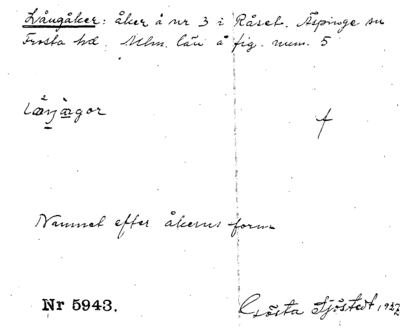 Långåker: åker å nr 3 i Råset. Äspinge sn
Frosta hd. Mlm. län å fig. num. 5
f
Namnet efter åkerns form
Nr 5943.
Gösta Sjöstedt, 1932